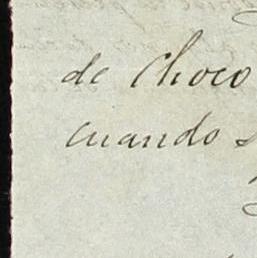 de Choco
cuando